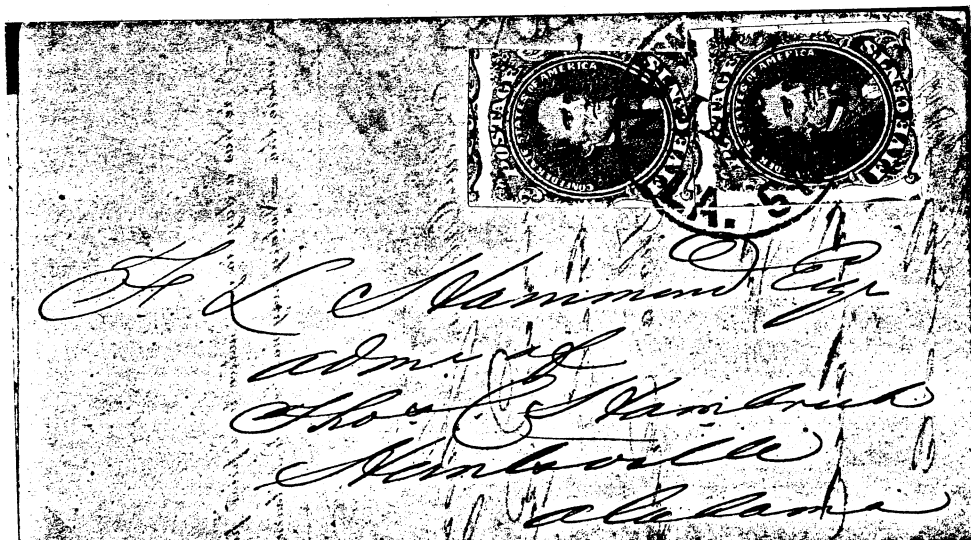 POSTAGE CONFEDERATE STATES OF AMERICA FIVE CENTS
POSTAGE STATES OF AMERICA FIVE CENTS
F L Hammond Esqr
adm. of
Thos C Hambrick
Huntsville
Alabama